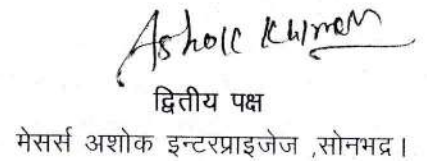 Ashok Kumar
द्वितीय पक्ष
मेसर्स अशोक इन्टरप्राइजेज ,सोनभद्र।